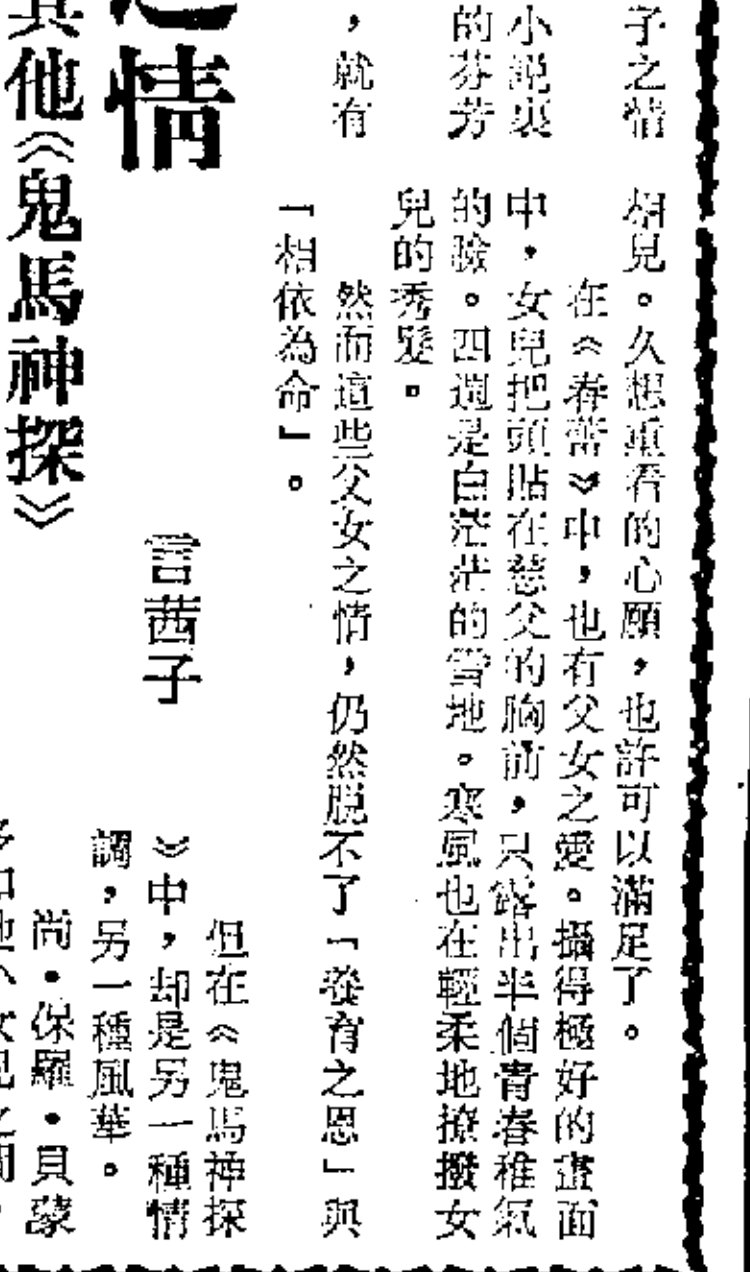 子之情
小說裏
的芬芳
，就有
相兒。久想重看的心願，也許可以滿足了。
在《春蕾》中，也有父女之愛。攝得極好的畫面
中，女兒把頭貼在慈父的胸前，只露出半個青春稚氣
的臉。四週是白茫茫的雪地。寒風也在輕柔地撩撥女
兒的秀髮。
然而這些父女之情，仍然脱不了「養育之恩」與
「相依為命」。
情
其他《鬼馬神探》
言茜子
但在《鬼馬神探
》中，却是另一種情
調，另一種風華。
尚・保羅・貝蒙